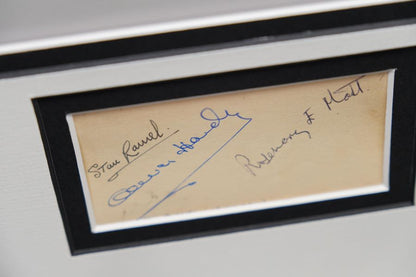 Stan Laurel.
Oliver Hardy
Rosemary E Matt